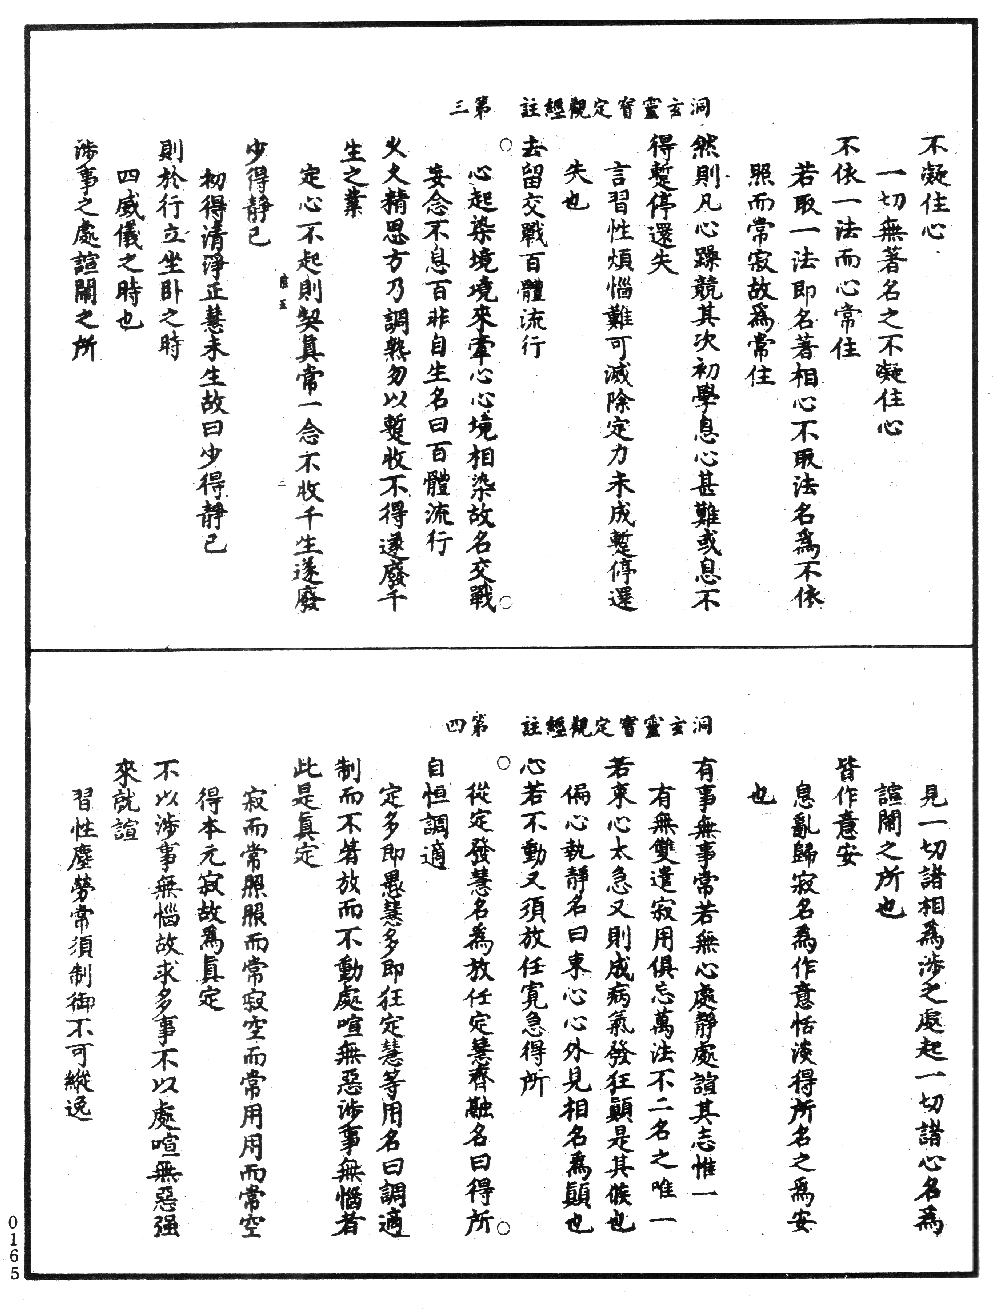 不凝住心
一切無著名之不凝住心
不依一法而心常住
若取一法即名著相心不取法名為不依
照而常寂故為常住
然則凡心躁競其次初學息心甚難或息不
得蹔停還失
言習性煩惱難可滅除定力未成蹔停還
失也
洞玄靈寶定觀經註 第三
去留交戰百體流行
心起染境境來牽心心境相染故名交戰
妄念不息百非自生名曰百體流行
久久精思方乃調熟勿以蹔收不得遂廢千
生之業
定心不起則契真常一念不收千生遂廢
少得靜已
初得清淨正慧未生故曰少得靜已
則於行立坐臥之時
四威儀之時也
涉事之處諠鬧之所
見一切諸相為涉之處起一切諸心名為
諠鬧之所也
皆作意安
息亂歸寂名為作意恬淡得所名之為安
也
有事無事常若無心處靜處諠其志惟一
有無雙遣寂用俱忘萬法不二名之唯一
若束心太急又則成病氣發狂顛是其候也
偏心執靜名曰束心心外見相名為顛也
洞玄靈寶定觀經註 第四
心若不動又須放任寬急得所
從定發慧名為放任定慧齊融名曰得所
自恒調適
定多即愚慧多即狂定慧等用名曰調適
制而不著放而不動處喧無惡涉事無惱者
此是真定
寂而常照照而常寂空而常用用而常空
得本元寂故為真定
不以涉事無惱故求多事不以處喧無惡强
來就諠
習性塵勞常須制御不可縱逸
0165